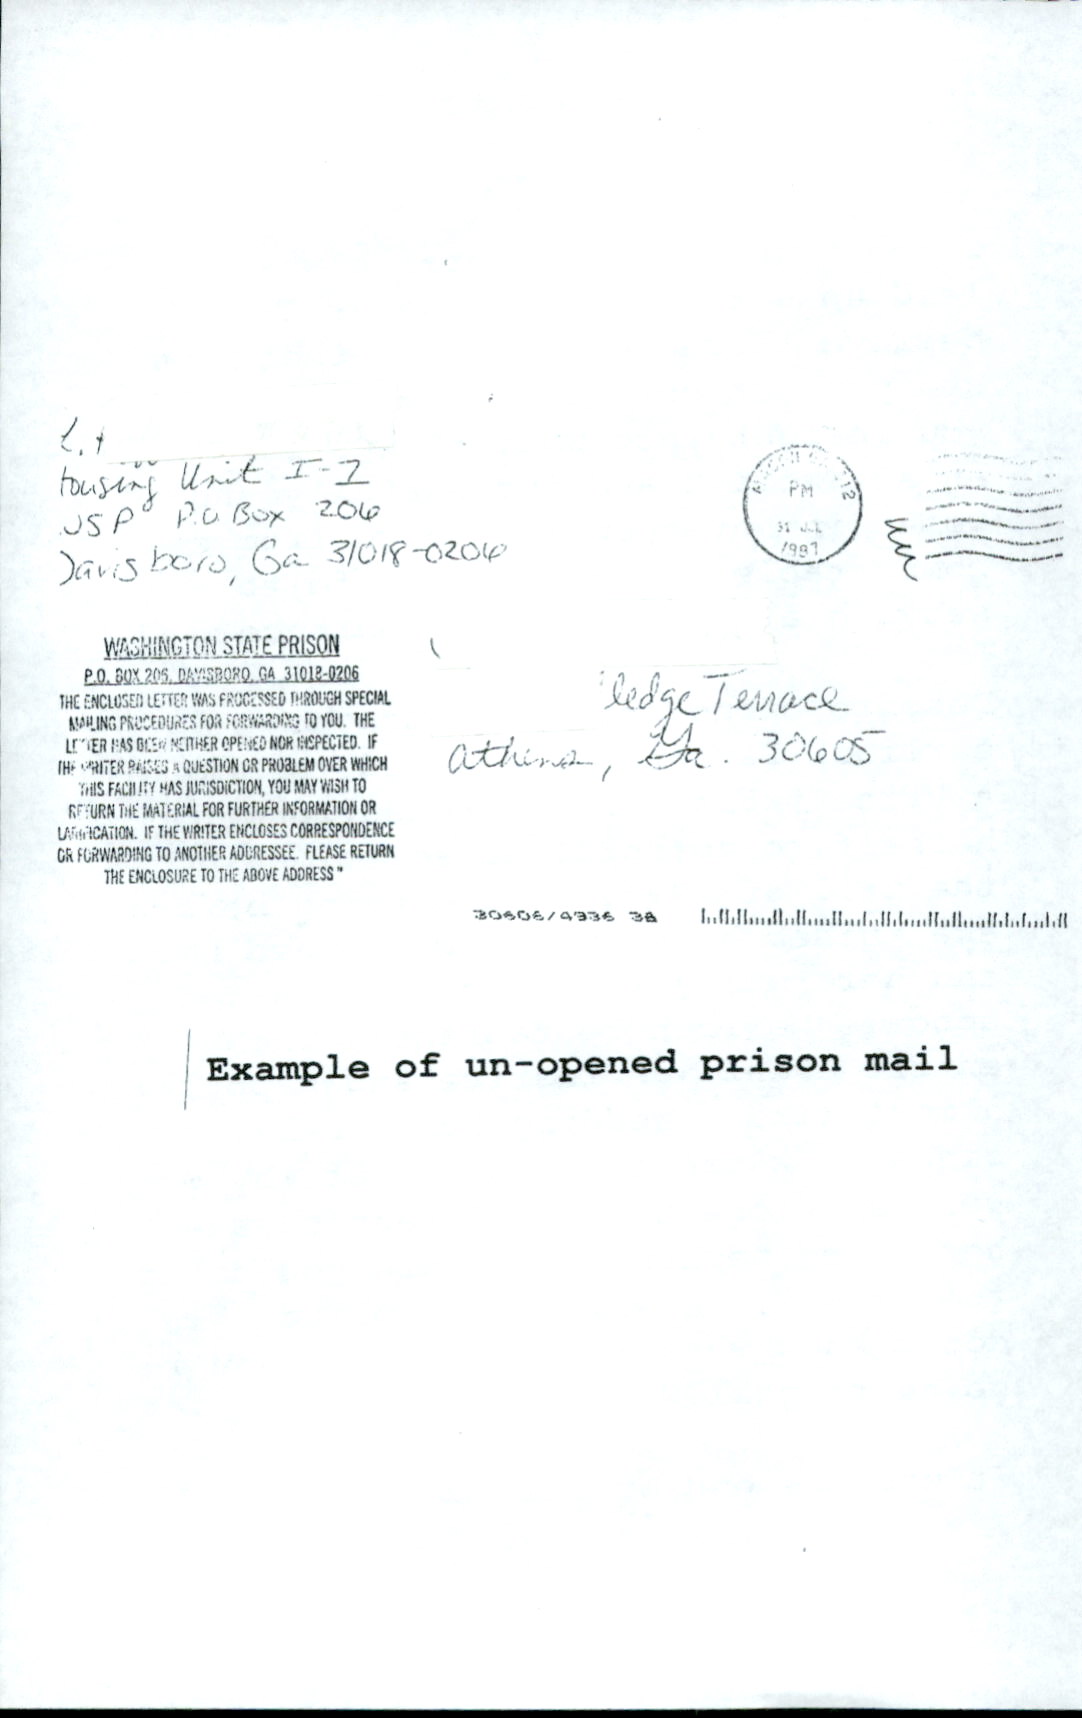 Housing Unit I-7
WSP P.O Box 206
Davisboro, Ga 31018-0206
PM
31 JUL
1997
WASHINGTON STATE PRISON
P.O. BOX 206, DAVISBORO, GA 31018-0206
THE ENCLOSED LETTER WAS PROCESSED THROUGH SPECIAL
MAILING PROCEDURES FOR FORWARDING TO YOU. THE
LETTER HAS BEEN NEITHER OPENED NOR INSPECTED. IF
THE WRITER RAISES A QUESTION OR PROBLEM OVER WHICH
THIS FACILITY HAS JURISDICTION, YOU MAY WISH TO
RETURN THE MATERIAL FOR FURTHER INFORMATION OR
LARIFICATION. IF THE WRITER ENCLOSES CORRESPONDENCE
OR FORWARDING TO ANOTHER ADDRESSEE. PLEASE RETURN
THE ENCLOSURE TO THE ABOVE ADDRESS"
ledge Terrace
Athens, Ga. 30605
30606/4336 38
Example of un-opened prison mail